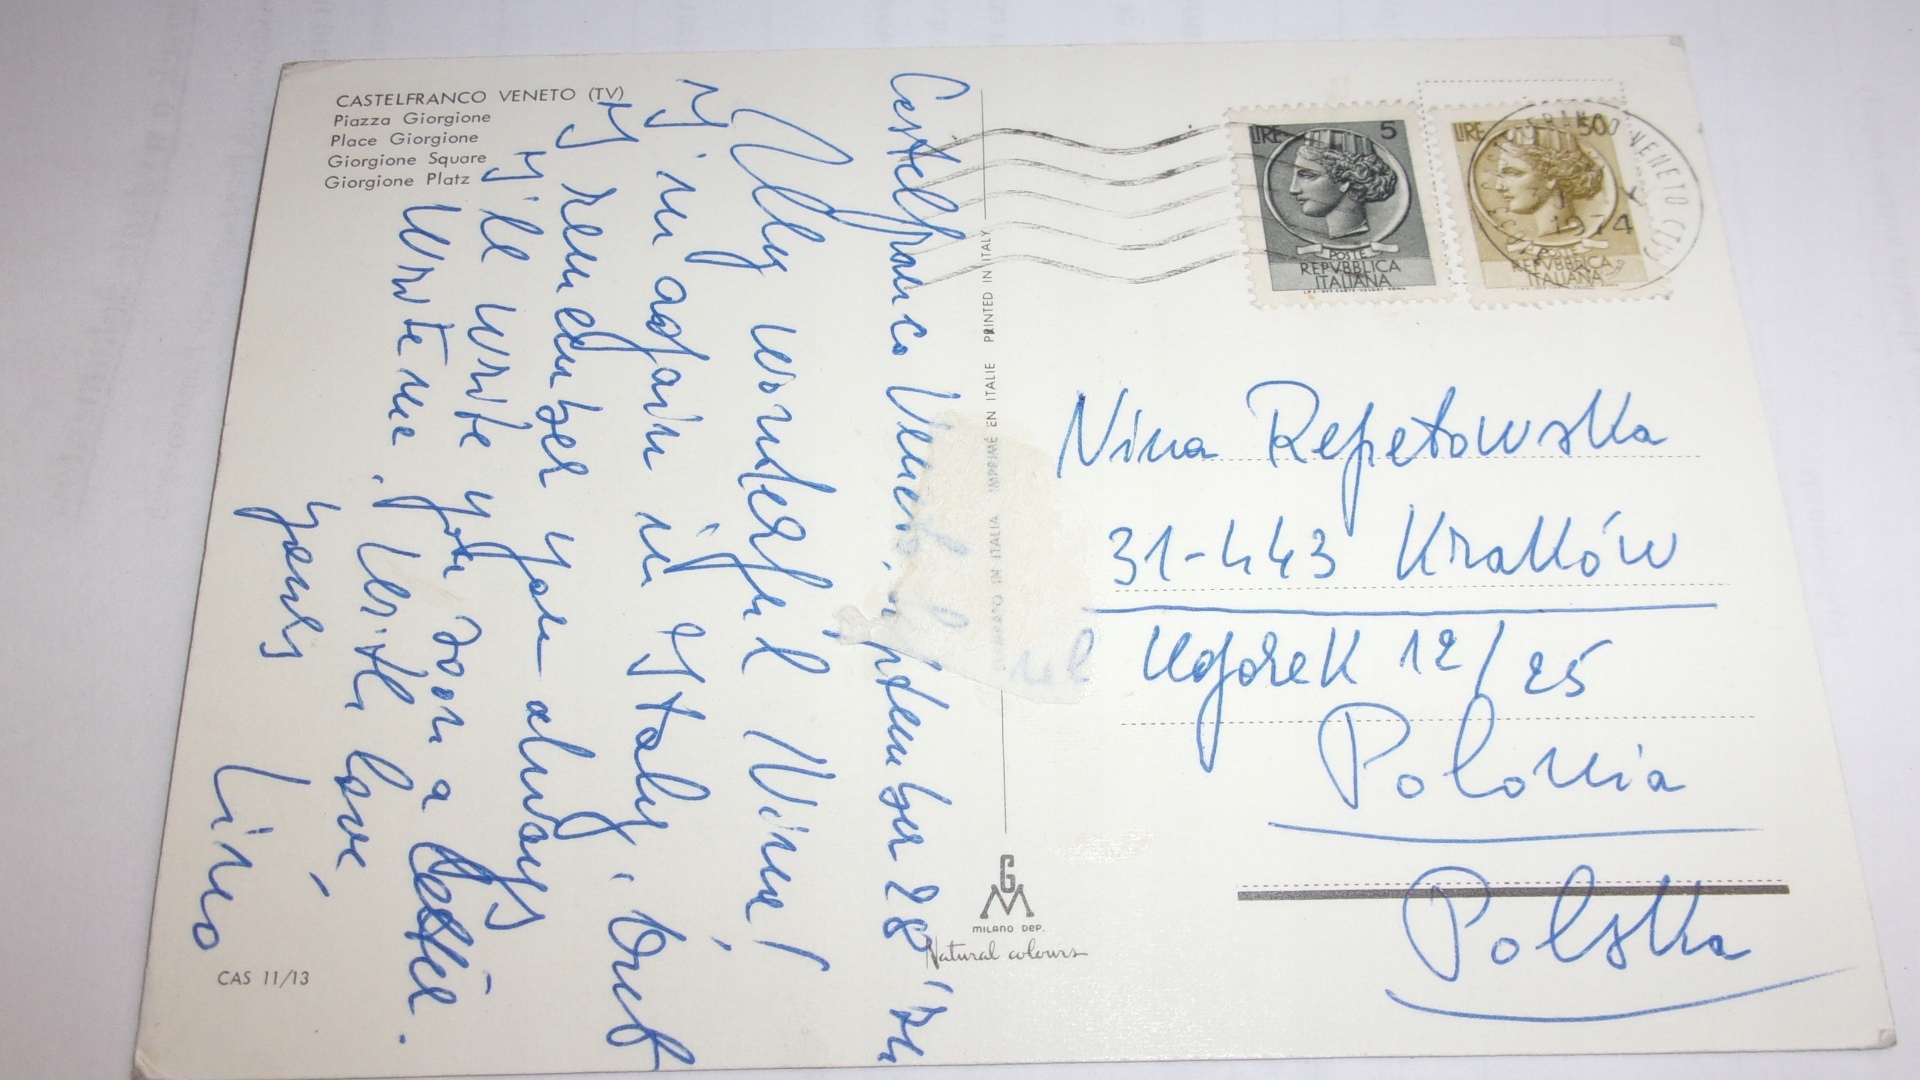 CASTELFRANCO VENETO (TV)
Piazza Giorgione
Place Giorgione
Giorgione Square
Giorgione Platz
Castelfranco Veneto, September 28 '74
My wonderful Nina!
I'm again in Italy, but
I remember you always
I'll write you soon a letter.
Write me. With love,
yours
Lino
CAS 11/13
PRINTED IN ITALY
IMPRIMÉ EN ITALIE
IN ITALIA
GM
MILANO DEP.
Natural colours
LIRE 5
POSTE
REPVBBLICA
ITALIANA
LIRE 50
POSTE
REPVBBLICA
ITALIANA
VENETO (TV)
1974
Nina Repetowska
31-443 Kraków
Ugorek 12/25
Polonia
Polska